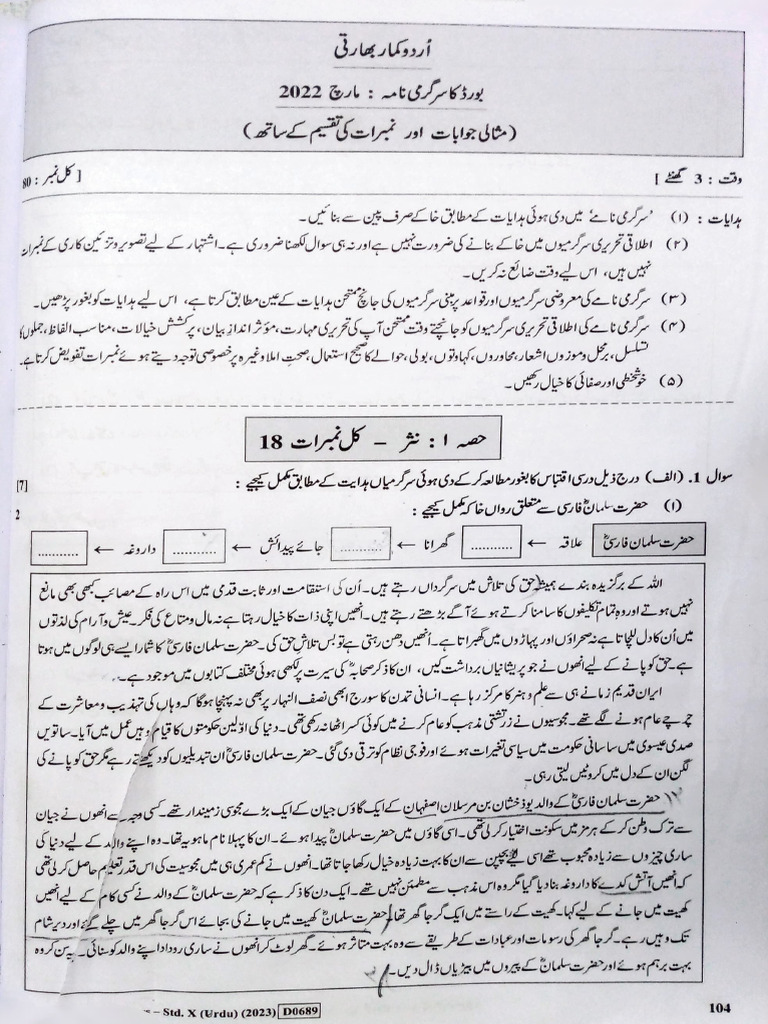 اُردو کمار بھارتی
بورڈ کا سرگرمی نامہ : مارچ 2022
(مثالی جوابات اور نمبرات کی تقسیم کے ساتھ)
وقت : 3 گھنٹے ] [ کل نمبر : 80
ہدایات : (۱) 'سرگرمی نامے' میں دی ہوئی ہدایات کے مطابق خاکے صرف پین سے بنائیں۔
(۲) اطلاقی تحریری سرگرمیوں میں خاکے بنانے کی ضرورت نہیں ہے اور نہ ہی سوال لکھنا ضروری ہے۔ اشتہار کے لیے تصویر و تزئین کاری کے نمبرات
نہیں ہیں، اس لیے وقت ضائع نہ کریں۔
(۳) سرگرمی نامے کی معروضی سرگرمیوں اور قواعد پر مبنی سرگرمیوں کی جانچ ممتحن ہدایات کے عین مطابق کرتا ہے، اس لیے ہدایات کو بغور پڑھیں۔
(۴) سرگرمی نامے کی اطلاقی تحریری سرگرمیوں کو جانچتے وقت ممتحن آپ کی تحریری مہارت، مؤثر اندازِ بیان، پرکشش خیالات، مناسب الفاظ، جملوں کا
تسلسل، برمحل و موزوں اشعار، محاوروں، کہاوتوں، بولی، حوالے کا صحیح استعمال، صحتِ املا وغیرہ پر خصوصی توجہ دیتے ہوئے نمبرات تفویض کرتا ہے۔
(۵) خوشخطی اور صفائی کا خیال رکھیں۔
حصہ ۱ : نثر – کل نمبرات 18
سوال 1. (الف) درج ذیل درسی اقتباس کا بغور مطالعہ کر کے دی ہوئی سرگرمیاں ہدایت کے مطابق مکمل کیجیے : [7]
(۱) حضرت سلمان فارسیؓ سے متعلق رواں خاکہ مکمل کیجیے : 2
حضرت سلمان فارسیؓ علاقہ ← .......... گھرانا ← .......... جائے پیدائش ← .......... داروغہ ← ..........
اللہ کے برگزیدہ بندے ہمیشہ حق کی تلاش میں سرگرداں رہتے ہیں۔ اُن کی استقامت اور ثابت قدمی میں اس راہ کے مصائب کبھی بھی مانع
نہیں ہوتے اور وہ تمام تکلیفوں کا سامنا کرتے ہوئے آگے بڑھتے رہتے ہیں۔ انھیں اپنی ذات کا خیال رہتا ہے نہ مال و متاع کی فکر۔ عیش و آرام کی لذتوں
میں اُن کا دل للچاتا ہے نہ صحراؤں اور پہاڑوں میں گھبراتا ہے۔ اُنھیں دھن رہتی ہے تو بس تلاشِ حق کی۔ حضرت سلمان فارسیؓ کا شمار ایسے ہی لوگوں میں ہوتا
ہے۔ حق کو پانے کے لیے انھوں نے جو پریشانیاں برداشت کیں، ان کا ذکر صحابہؓ کی سیرت پر لکھی ہوئی مختلف کتابوں میں موجود ہے۔
ایران قدیم زمانے ہی سے علم و ہنر کا مرکز رہا ہے۔ انسانی تمدن کا سورج ابھی نصف النہار پر بھی نہ پہنچا ہوگا کہ وہاں کی تہذیب و معاشرت کے
چرچے عام ہونے لگے تھے۔ مجوسیوں نے زرتشتی مذہب کو عام کرنے میں کوئی کسر اٹھا نہ رکھی تھی۔ دنیا کی اوّلین حکومتوں کا قیام وہیں عمل میں آیا۔ ساتویں
صدی عیسوی میں ساسانی حکومت میں سیاسی تغیرات ہوئے اور فوجی نظام کو ترقی دی گئی۔ حضرت سلمان فارسیؓ ان تبدیلیوں کو دیکھتے رہے مگر حق کو پانے کی
لگن ان کے دل میں کروٹیں لیتی رہی۔
حضرت سلمان فارسیؓ کے والد بوذخشان بن مرسلان اصفہان کے ایک گاؤں جیان کے ایک بڑے مجوسی زمیندار تھے۔ کسی وجہ سے انھوں نے جیان
سے ترکِ وطن کر کے ہرمز میں سکونت اختیار کر لی تھی۔ اسی گاؤں میں حضرت سلمانؓ پیدا ہوئے۔ ان کا پہلا نام ماہو یہ تھا۔ وہ اپنے والد کے لیے دنیا کی
ساری چیزوں سے زیادہ محبوب تھے اسی لیے بچپن سے ان کا بہت زیادہ خیال رکھا جاتا تھا۔ انھوں نے کم عمری ہی میں مجوسیت کی اس قدر تعلیم حاصل کر لی تھی
کہ انھیں آتش کدے کا داروغہ بنا دیا گیا مگر وہ اس مذہب سے مطمئن نہیں تھے۔ ایک دن کا ذکر ہے کہ حضرت سلمانؓ کے والد نے کسی کام کے لیے انھیں
کھیت میں جانے کے لیے کہا۔ کھیت کے راستے میں ایک گرجا گھر تھا۔ حضرت سلمانؓ کھیت میں جانے کی بجائے اس گرجا گھر میں چلے گئے اور دیر شام
تک وہیں رہے۔ گرجا گھر کی رسومات اور عبادات کے طریقے سے وہ بہت متاثر ہوئے۔ گھر لوٹ کر انھوں نے ساری روداد اپنے والد کو سنائی۔ یہ سن کر وہ
بہت برہم ہوئے اور حضرت سلمانؓ کے پیروں میں بیڑیاں ڈال دیں۔
– Std. X (Urdu) (2023) D0689
104